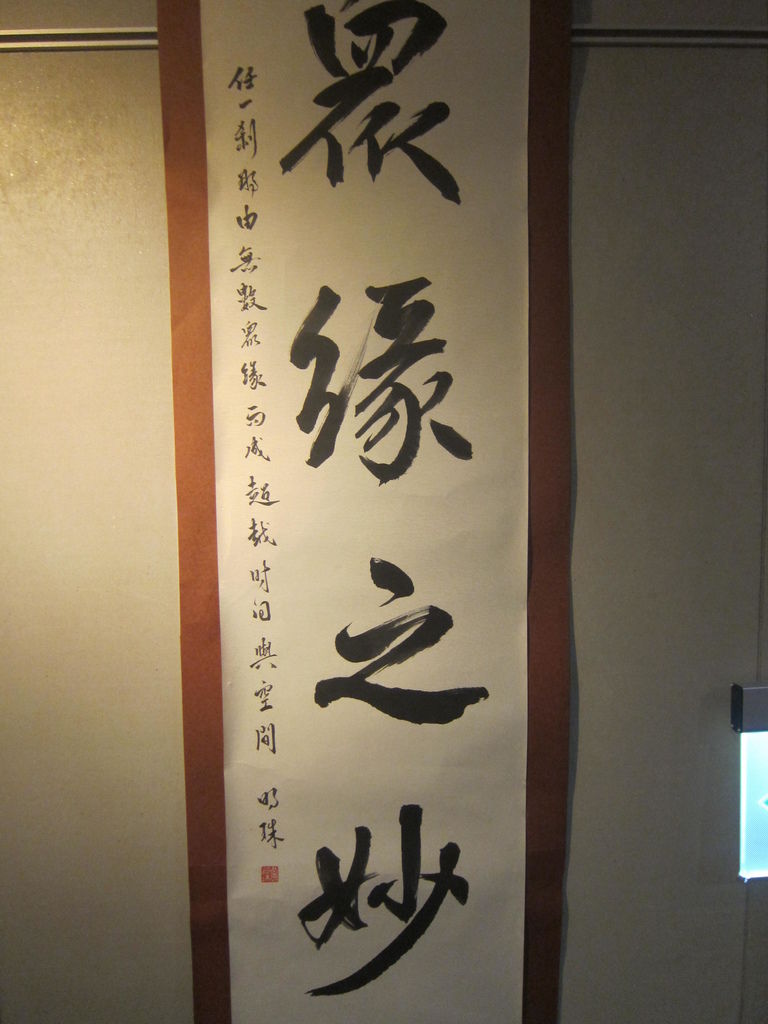 眾緣之妙
任一剎那由無數眾緣而成超越时间與空間 明珠